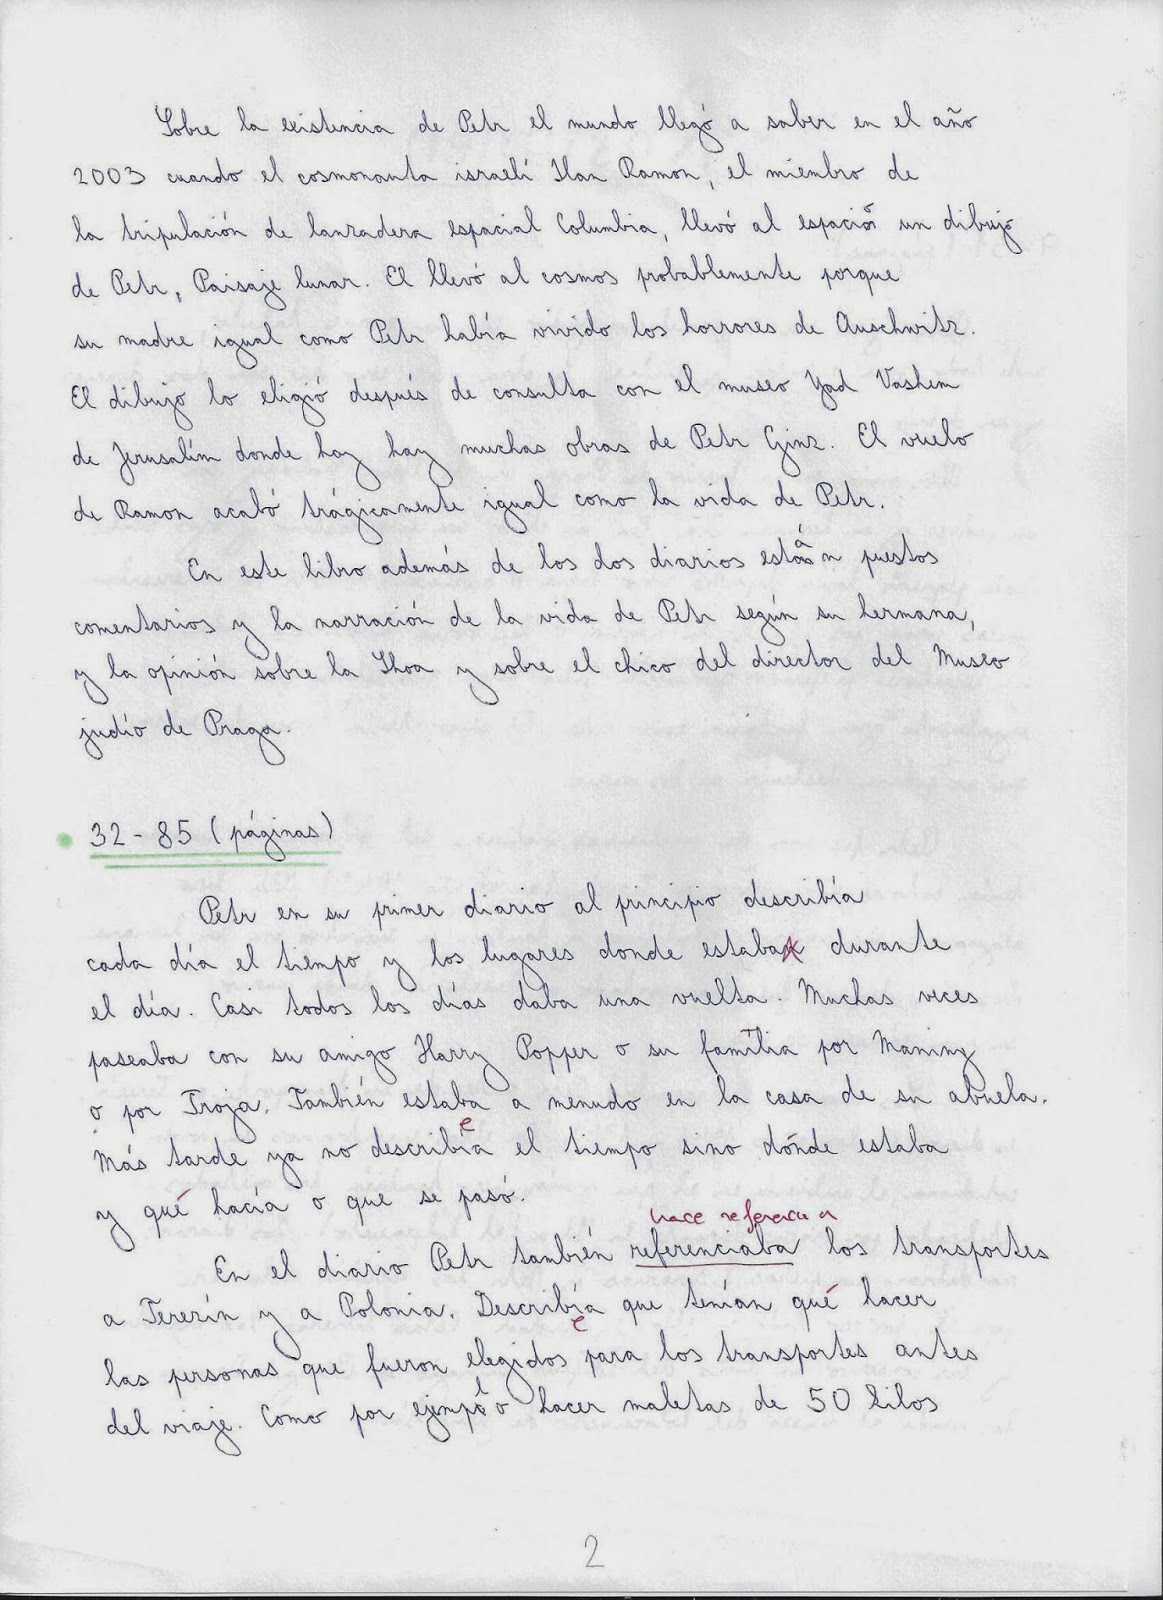 Sobre la existencia de Petr el mundo llegó a saber en el año
2003 cuando el cosmonauta israelí Ilan Ramon, el miembro de
la tripulación de lanzadera espacial Columbia, llevó al espacio un dibujo
de Petr, Paisaje lunar. El llevó al cosmos probablemente porque
su madre igual como Petr había vivido los horrores de Auschwitz.
El dibujo lo eligió después de consulta con el museo Yad Vashem
de Jerusalím donde hoy hay muchas obras de Petr Ginz. El vuelo
de Ramon acabó trágicamente igual como la vida de Petr.
En este libro además de los dos diarios están puestos
comentarios y la narración de la vida de Petr según su hermana,
y la opinión sobre la Shoa y sobre el chico del director del Museo
judío de Praga.
32 - 85 (páginas)
Petr en su primer diario al principio describía
cada día el tiempo y los lugares donde estaba durante
el día. Casi todos los días daba una vuelta. Muchas veces
paseaba con su amigo Harry Popper o su familia por Maniny
o por Troja. También estaba a menudo en la casa de su abuela.
e
Más tarde ya no describía el tiempo sino dónde estaba
y qué hacía o que se pasó.
hace referencia
En el diario Petr también referenciaba los transportes
a Terezín y a Polonia. Describía que tenían qué hacer
e
las personas que fueron elegidos para los transportes antes
del viaje. Como por ejemplo hacer maletas de 50 kilos
2